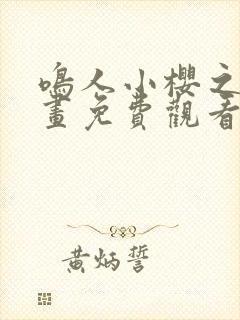 鳴人小櫻之
畫免費觀看
黃炳誓